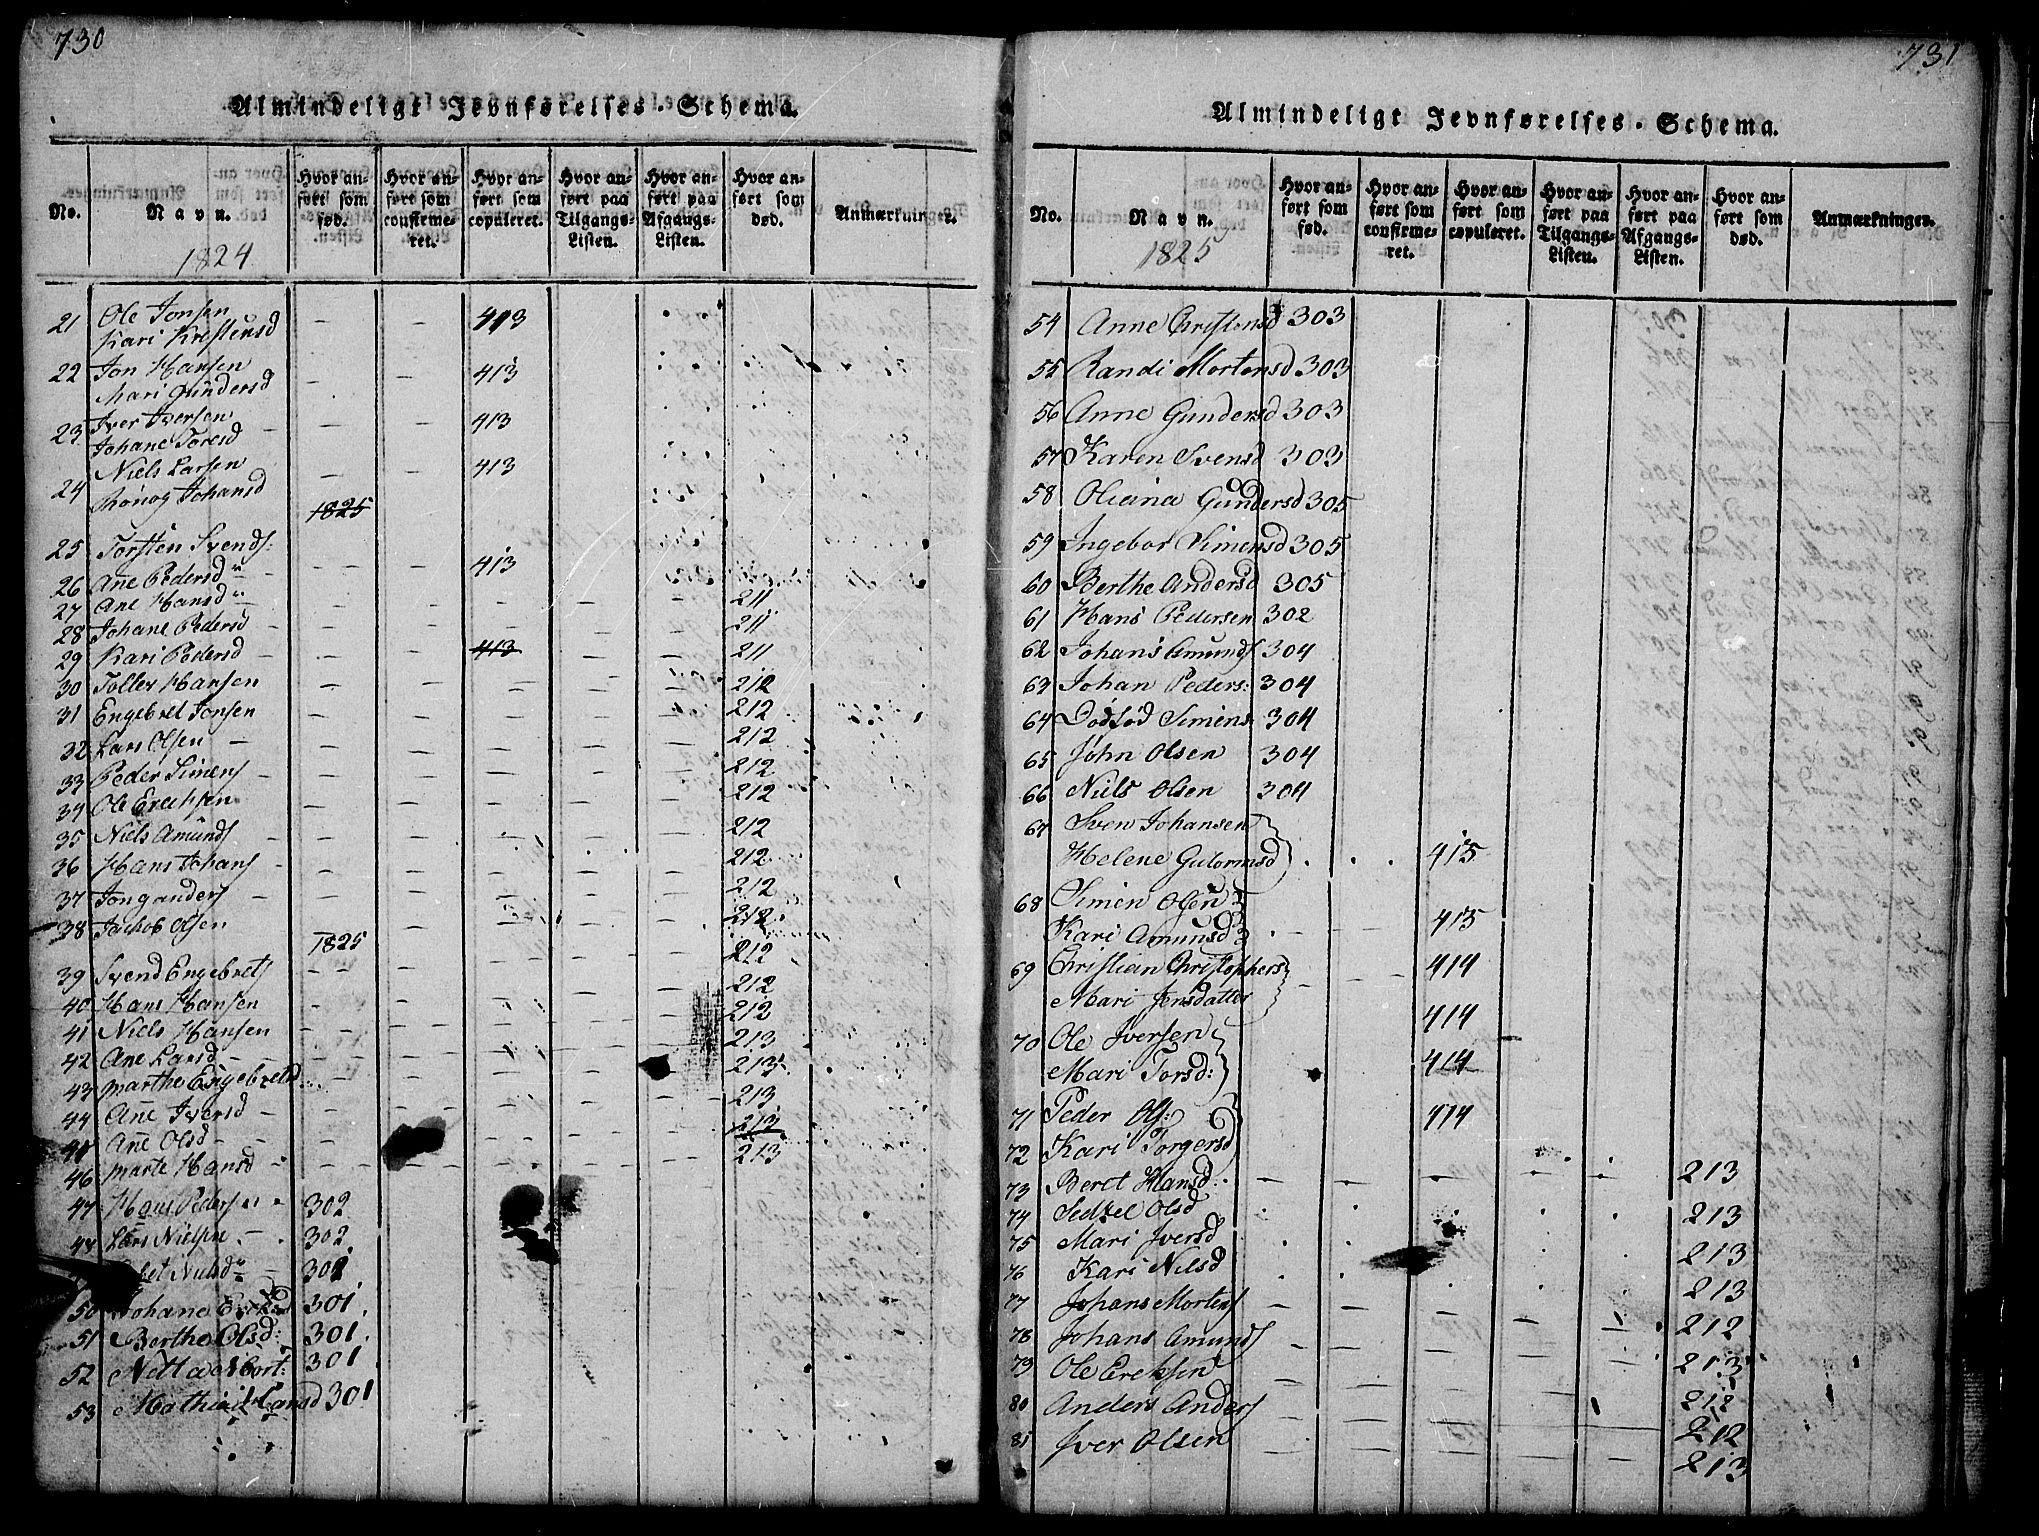 730
Almindeligt Jevnførelses-Schema.
No.
Navn.
Hvor anført som fød.
Hvor anført som confirmeret.
Hvor anført som copuleret.
Hvor anført paa Tilgangs-Listen.
Hvor anført paa Afgangs-Listen.
Hvor anført som død.
Anmærkninger.
1824
21 Ole Jonsen
Kari Krestensd — — 413
22 Jon Hansen
Mari Gundersd — — 413
23 Iver Iversen
Johane Toresd — — 413
24 Niels Larsen
Rönog Johansd — — 413
1825
25 Torsten Svends:
26 Ane Pedersd — — 413
27 Ane Hansd — — — — — 211
28 Johane Pedersd — — — — — 211
29 Kari Pedersd — — 413 — — 211
30 Toller Hansen — — — — — 212
31 Engebret Jonsen — — — — — 212
32 Lars Olsen — — — — — 212
33 Peder Simens — — — — — 212
34 Ole Erichsen — — — — — 212
35 Niels Amunds — — — — — 212
36 Hans Johans — — — — — 212
37 Jon Anders — — — — — 212
38 Jachob Olsen — — — — — 212
1825
39 Svend Engebrets — — — — — 212
40 Hans Hansen — — — — — 212
41 Niels Hansen — — — — — 212
42 Ane Larsd — — — — — 213
43 Marthe Engebretsd — — — — — 213
44 Ane Iversd — — — — — 213
45 Ane Olsd — — — — — 213
46 Marte Hansd — — — — — 213
47 Hans Pedersen 302
48 Lars Nielsen 302
Nielsd 302
50 Johane Ericksd 301
51 Berthe Olsd: 301
52 301
53 Mathia Hansd 301
731
Almindeligt Jevnførelses-Schema.
No.
Navn.
Hvor anført som fød.
Hvor anført som confirmeret.
Hvor anført som copuleret.
Hvor anført paa Tilgangs-Listen.
Hvor anført paa Afgangs-Listen.
Hvor anført som død.
Anmærkninger.
1825
54 Anne Christensd 303
55 Randi Mortensd 303
56 Anne Gundersd 303
57 Karen Svensd 303
58 Oliana Gundersd 305
59 Ingebor Simensd 305
60 Berthe Andersd 305
61 Hans Pedersen 302
62 Johans Amunds 304
63 Johan Peders: 304
64 Dødfød Simens 304
65 John Olsen 304
66 Niels Olsen 304
67 Sven Johansen
Helene Gulormsd 415
68 Simen Olsen
Kari Amunsd 415
69 Christian Christophers
Mari Jensdatter 414
414
70 Ole Iversen
Mari Torsd: 414
71 Peder Ols:
72 Kari Torgersd 414
73 Beret Hansd: — — — — — 213
74 Sedzel Olsd 213
75 Mari Iversd 213
76 Kari Nilsd 213
77 Johans Mortens — — — — — 212
78 Johans Amunds — — — — — 213
79 Ole Erchsen — — — — — 212
80 Anders Anders — — — — — 212
81 Iver Olsen — — — — — 213